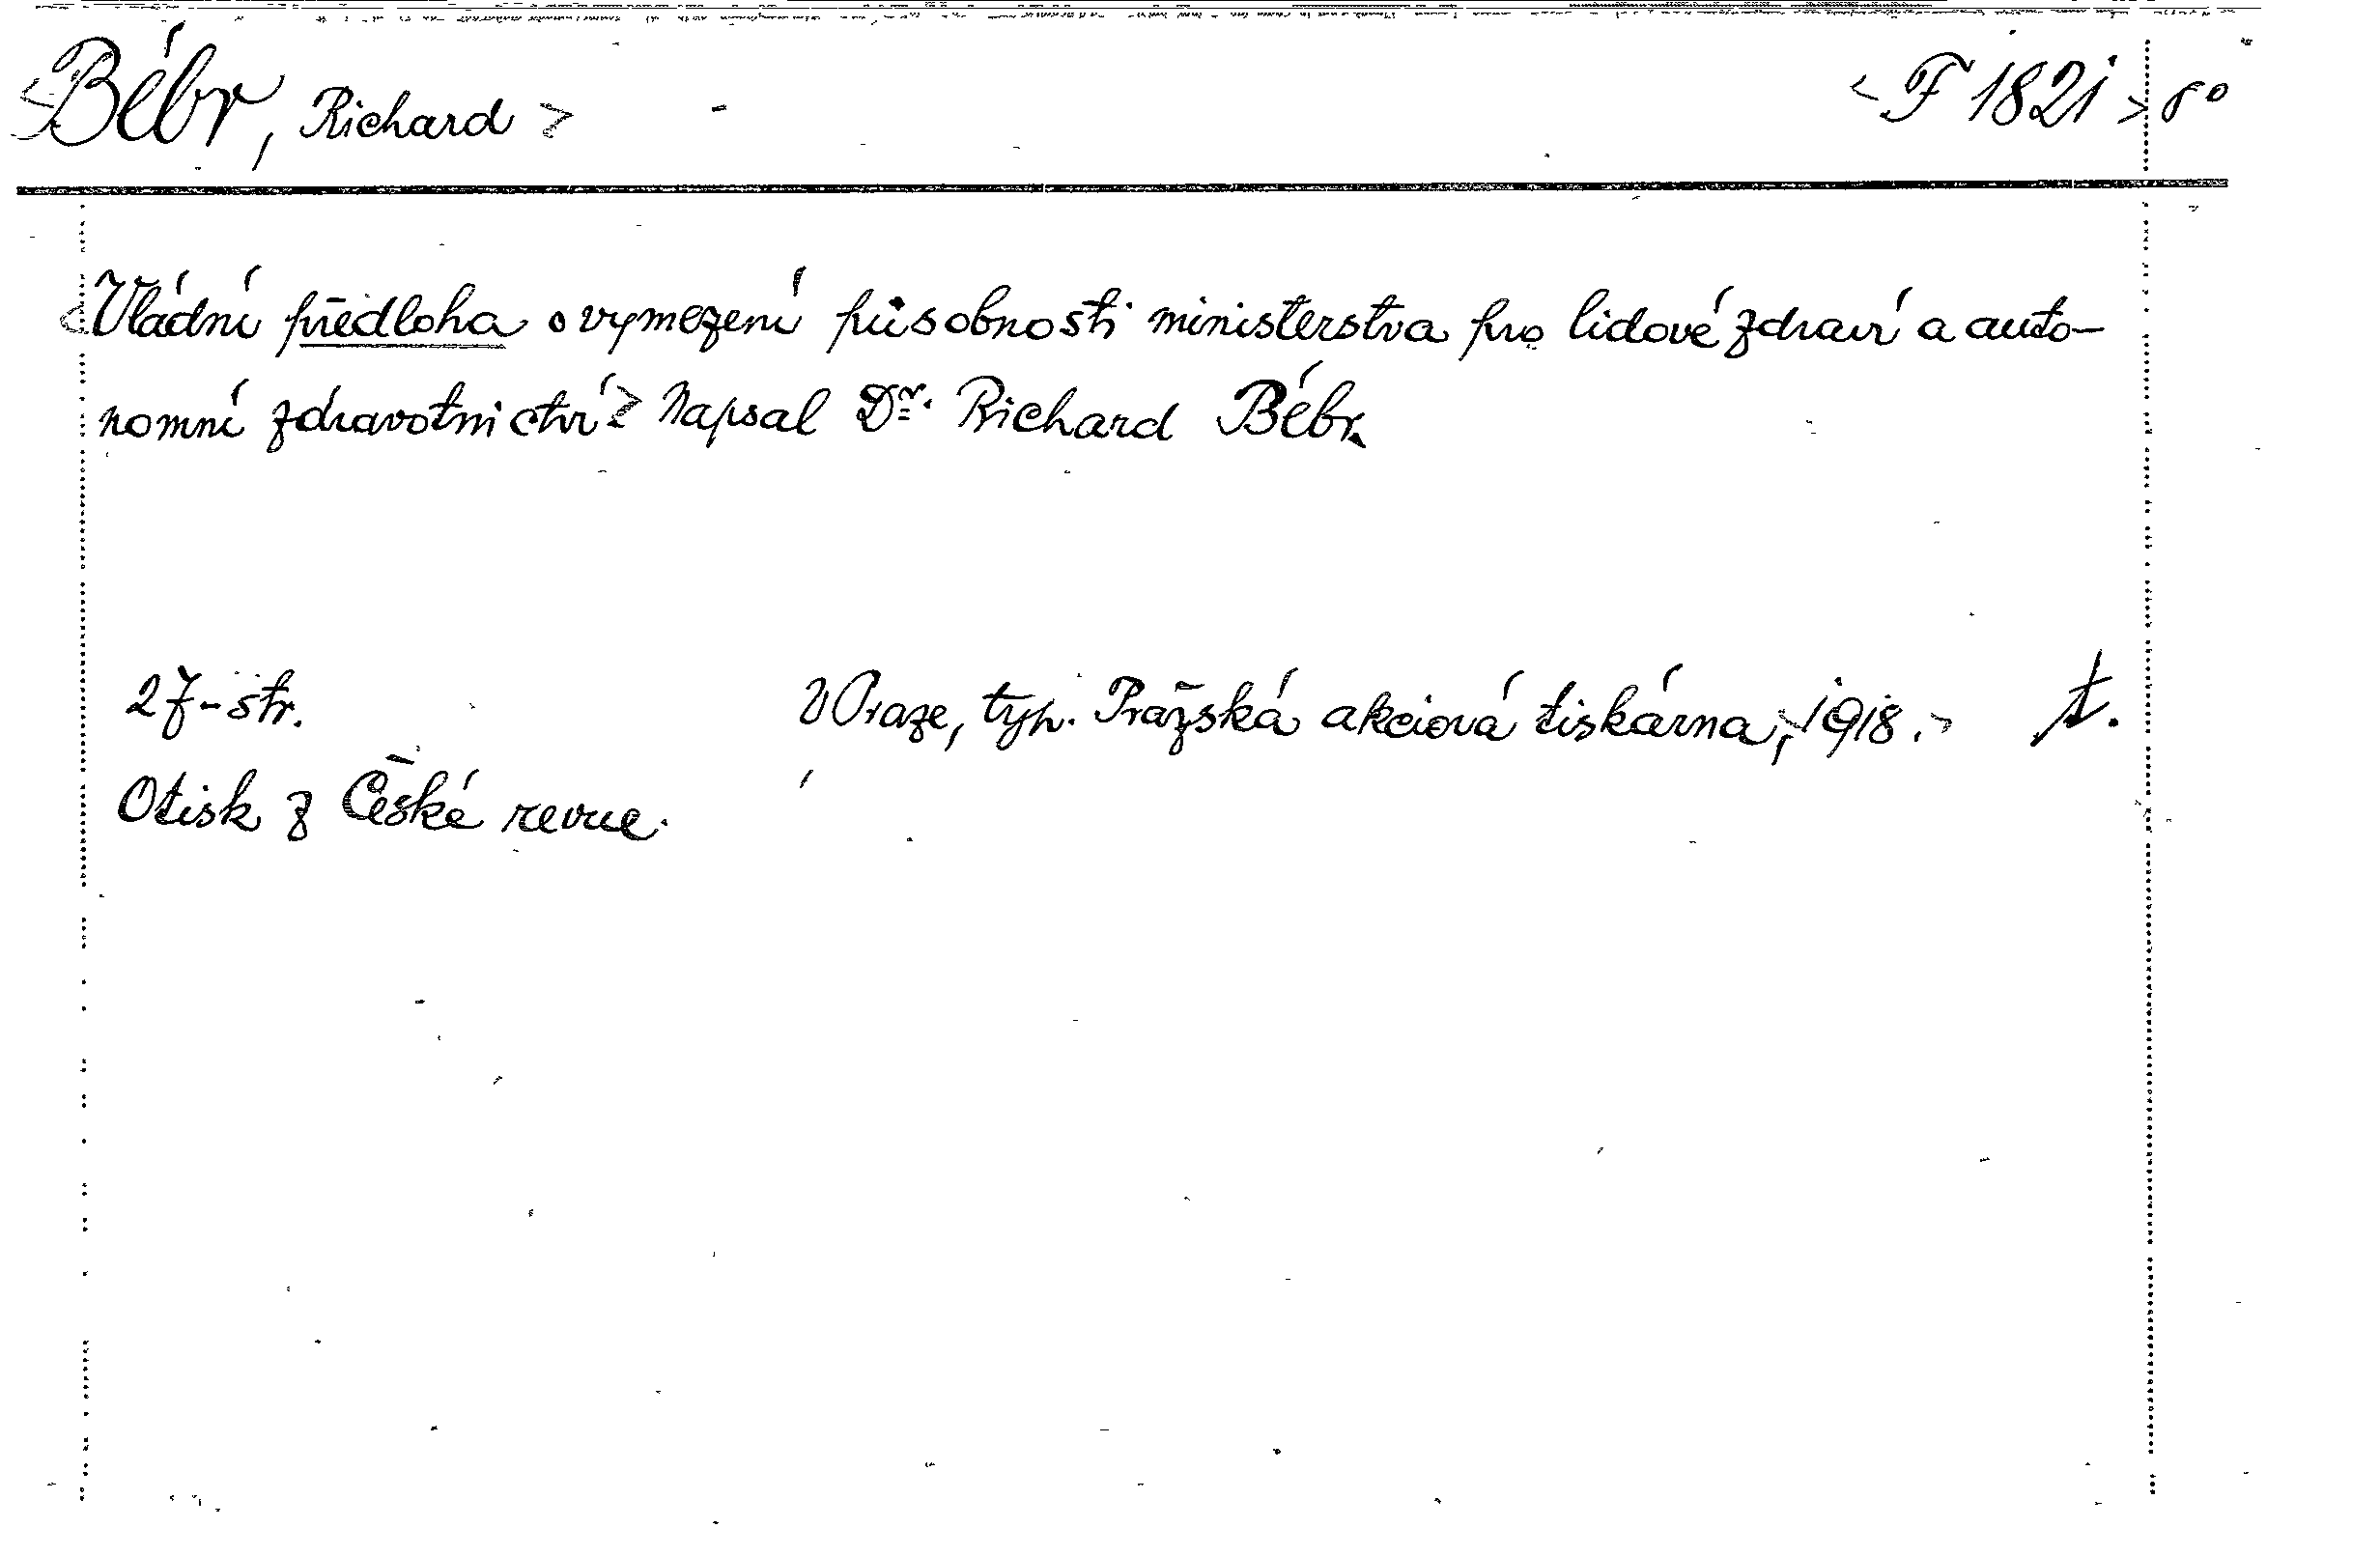 <Bébr, Richard> - <F 1821> 8°
<Vládní předloha o vymezení působnosti ministerstva pro lidové zdraví a auto-
nomní zdravotnictví> Napsal Dr. Richard Bébr.
27-str. V Praze, typ. Pražská akciová tiskárna, 1918.> t.
Otisk z České revue.